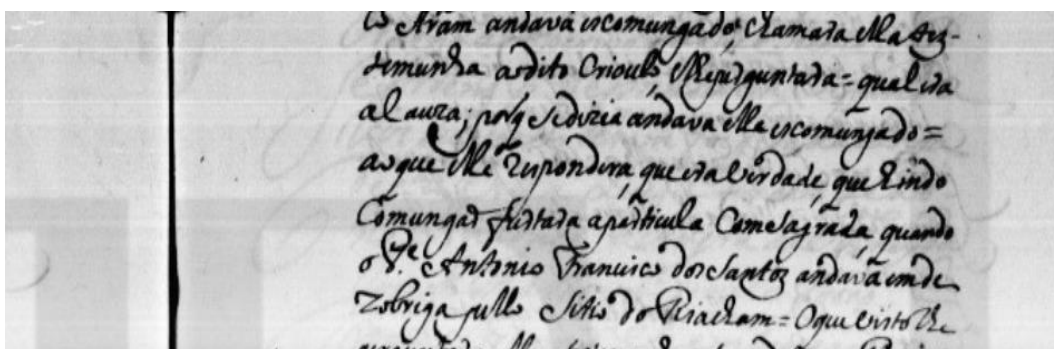 Aram andava escomungado, chamara ella tes-
temunha ao dito Crioulo, elhe preguntara = qual era
a Cauza, porq̃ se dizia andava elle escomungado =
ao que elle respondera, que era verdade, que hindo
Comungar furtara a particula Comsagrada, quando
o P.e Antonio Francisco dos Santos andava em de
zobriga pello Sitio do Riacham = O que visto lhe